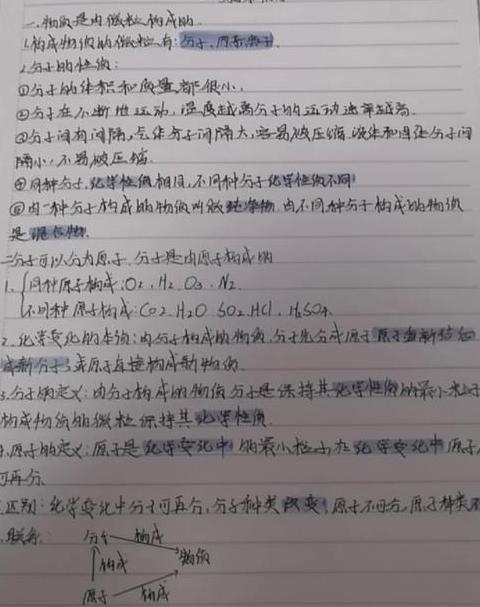 一.物质是由微粒构成的.
1.构成物质的微粒有:分子、原子、离子.
2.分子的性质:
①分子的体积和质量都很小.
②分子在不断地运动,温度越高分子的运动速率越高.
③分子间有间隔,气体分子间隔大,容易被压缩.液体和固体分子间
隔小,不易被压缩.
④同种分子,化学性质相同,不同种分子化学性质不同
⑤由一种分子构成的物质叫做纯净物.由不同种分子构成的物质
是混合物.
二.分子可以分为原子.分子是由原子构成的
1.{同种原子构成:O₂.H₂.O₃.N₂.
不同种原子构成:CO₂.H₂O.SO₂.HCl.H₂SO₄.
2.化学变化的本质:由分子构成的物质,分子先分成原子 原子重新结合
成新分子;或原子直接构成新物质.
3.分子的定义:由分子构成的物质分子是保持其化学性质的最小粒子
构成物质的微粒保持其化学性质.
4.原子的定义:原子是化学变化中的最小粒子,在化学变化中原子,
可再分.
区别:化学变化中分子可再分,分子种类改变,原子不可分,原子种类不
.联系:分子 构成
构成 物质
原子 构成